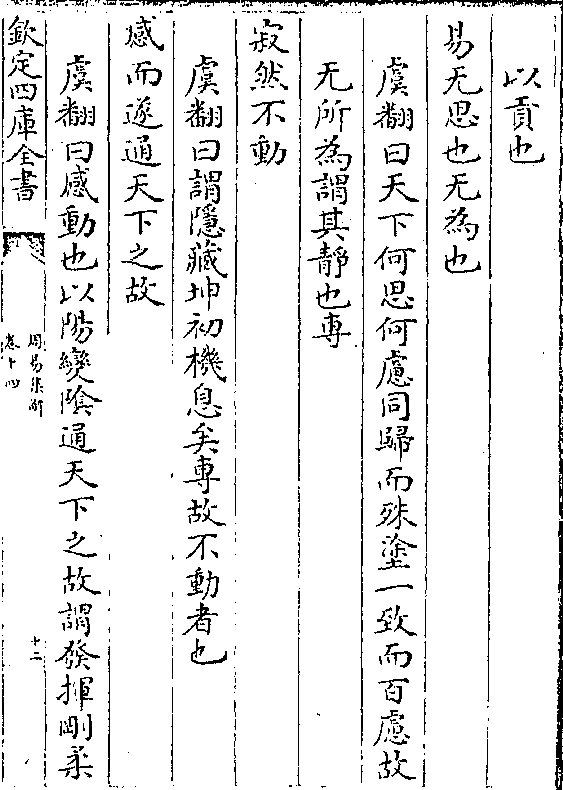 以貢也
易无思也无為也
虞翻曰天下何思何慮同歸而殊塗一致而百慮故
无所為謂其靜也專
寂然不動
虞翻曰謂隱藏坤初機息矣專故不動者也
感而遂通天下之故
虞翻曰感動也以陽變陰通天下之故謂發揮剛柔
欽定四庫全書
周易集解
卷十四
十二